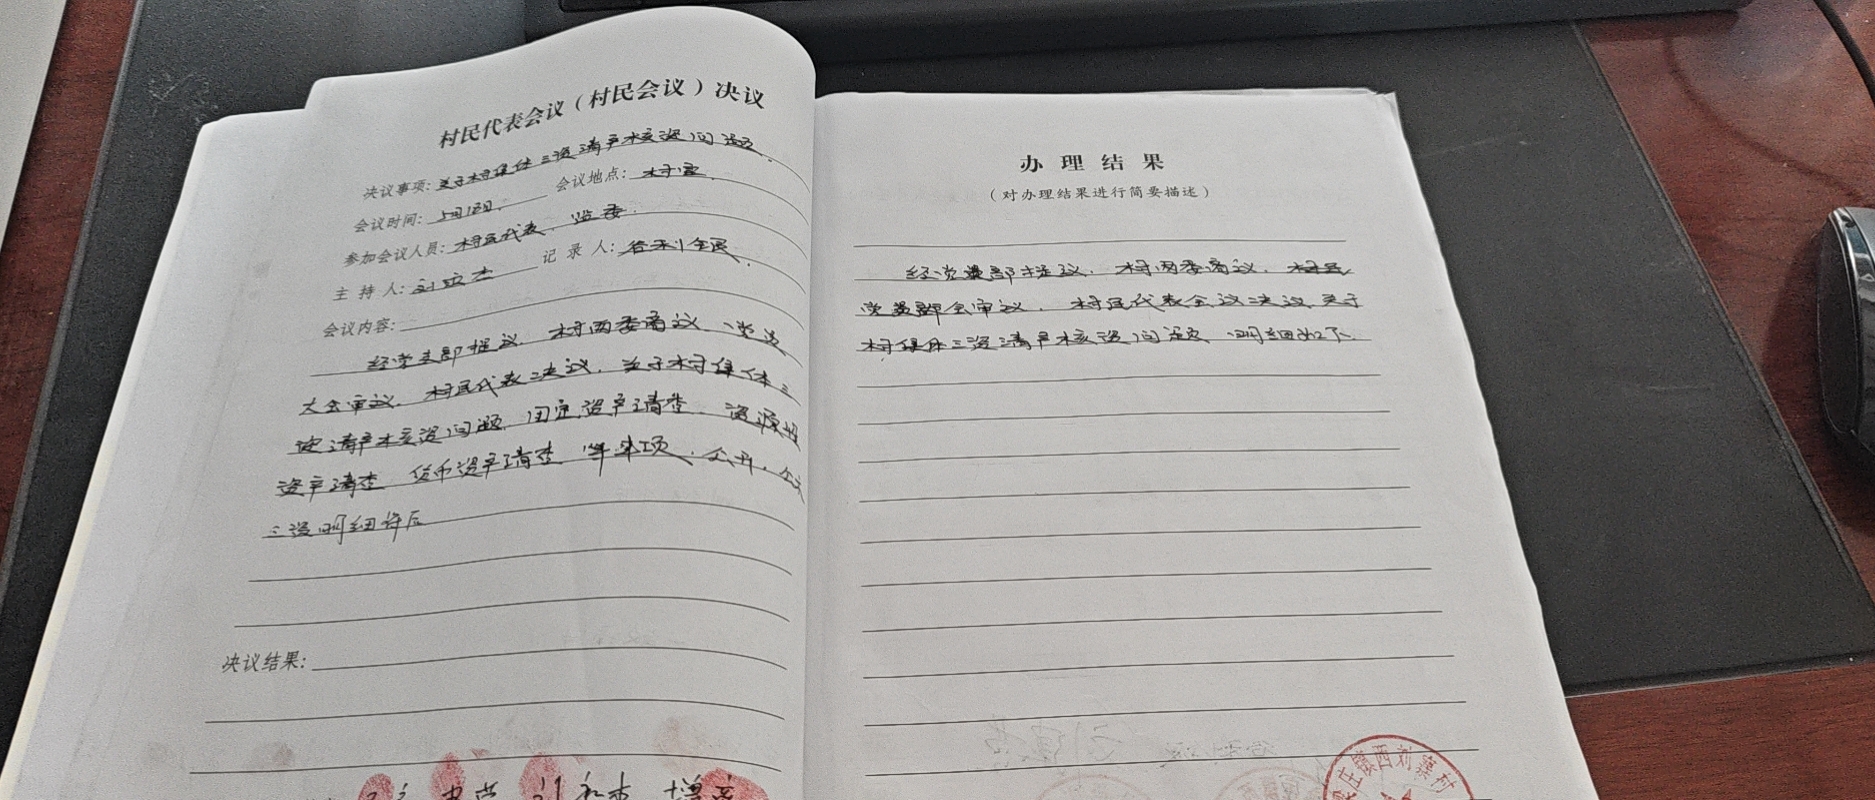 村民代表会议（村民会议）决议
决议事项：关于村集体三资清产核资问题.
会议时间：5月13日. 会议地点：村室.
参加会议人员：村民代表、监委.
主 持 人：刘 杰 记 录 人：刘全民.
会议内容：
经党支部提议、村两委商议、党员
大会审议、村民代表决议、关于村集体三
资清产核资问题、固定资产清查、资源性
资产清查、货币资产清查等事项、公开、公示
三资明细
决议结果：
办 理 结 果
（对办理结果进行简要描述）
经党员部提议、村两委商议、村民
党员群会审议、村民代表会议决议关于
村集体三资清产核资问题 明细如下
庄镇西刘寨村